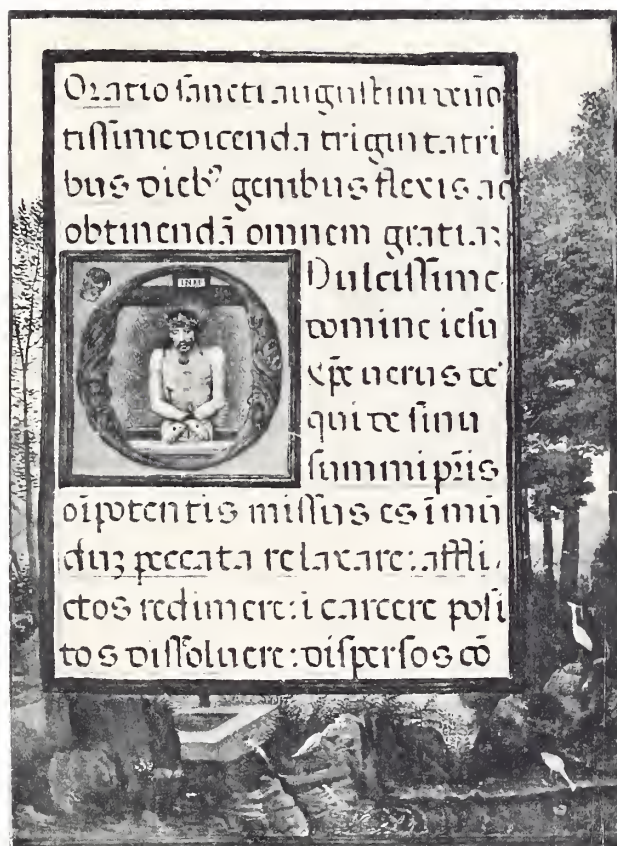 Oratio sancti augustini deuo
tissime dicenda triginta tri
bus dieb⁹ genibus flexis ad
obtinendā omnem gratiaꝫ
INRI
Dulcissime
domine iesu
xp̄e uerus de⁹
qui de sinu
summi pr̄is
oīpotentis missus es ī mū
duꝫ peccata relaxare: affli
ctos redimere: ī carcere posi
tos dissoluere: dispersos cō